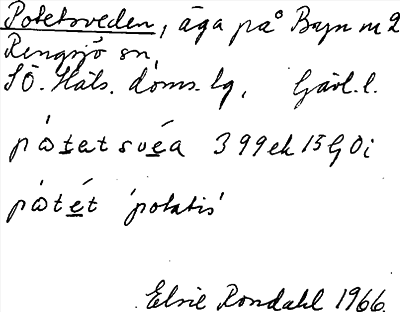 Potetsveden, äga på Byn m 2
Rengsjö sn,
SÖ. Häls. doms. lg, Gävl. l.
pȧtetsvéa 399 ek 15 G Ö i
pȧtét 'potatis'
Elsie Rondahl 1966.